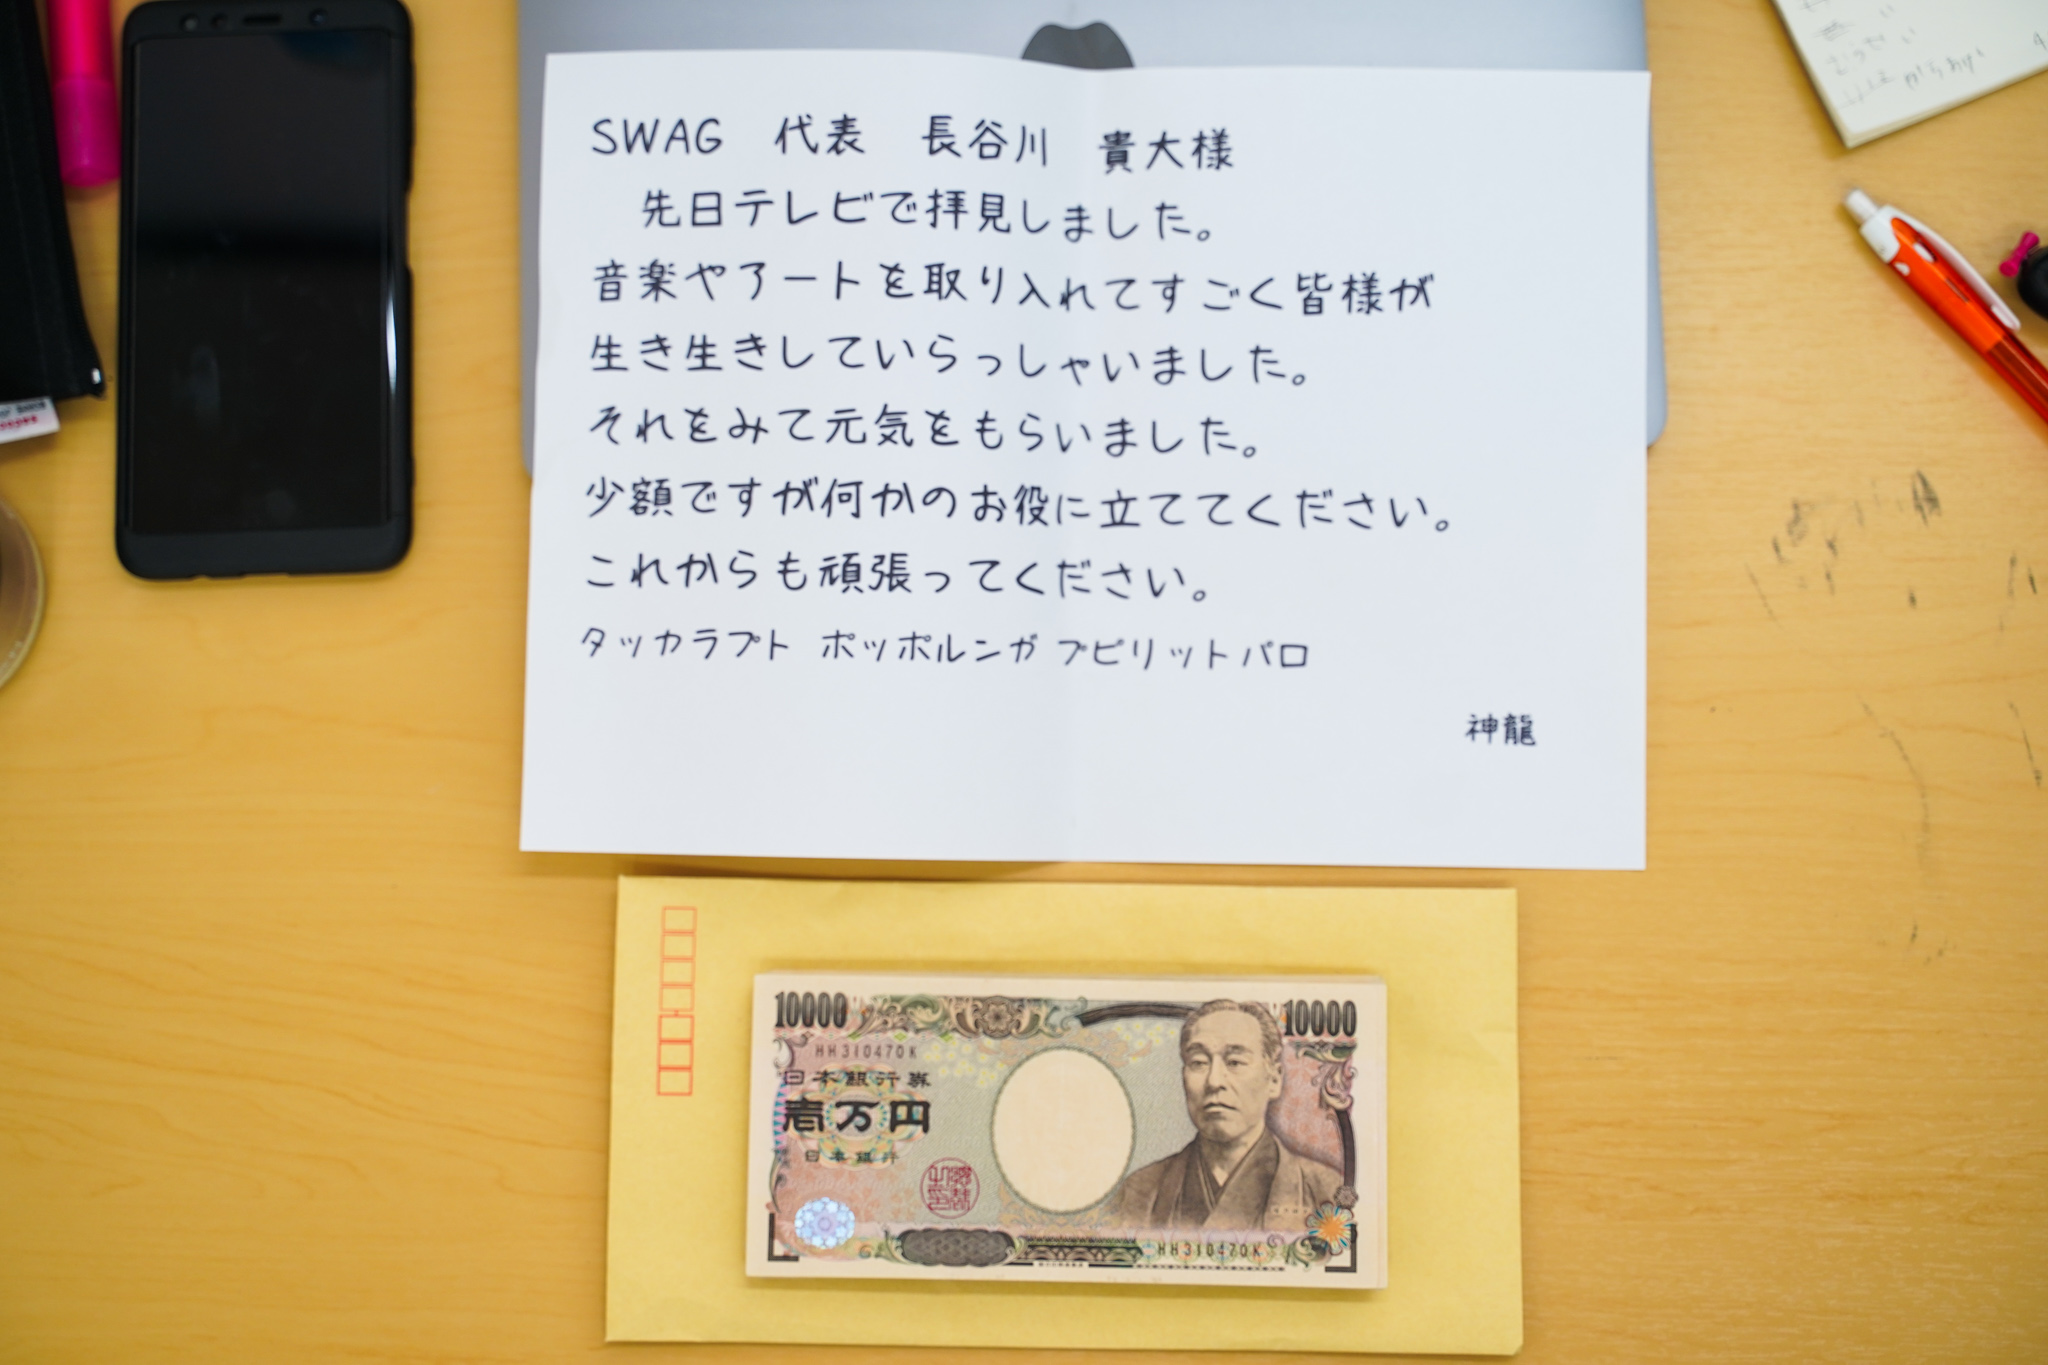 SWAG 代表 長谷川 貴大様
先日テレビで拝見しました。
音楽やアートを取り入れてすごく皆様が
生き生きしていらっしゃいました。
それをみて元気をもらいました。
少額ですが何かのお役に立ててください。
これからも頑張ってください。
タッカラプト ポッポルンガ プピリットパロ
神龍
10000
10000
HH310470K
日本銀行券
壱万円
日本銀行
HH310470K